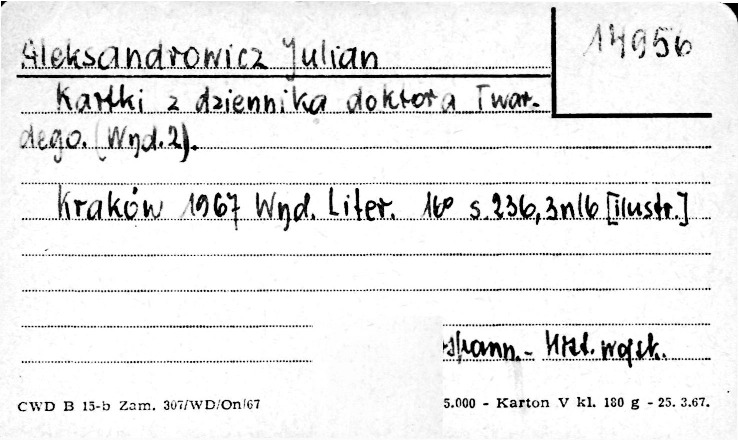 Aleksandrowicz Julian
14956
Kartki z dziennika doktora Twar-
dego. (Wyd. 2).
Kraków 1967 Wyd. Liter. 16° s. 236, 3nlb [ilustr.]
CWD B 15-b Zam. 307/WD/On/67
5.000 - Karton V kl. 180 g - 25. 3.67.